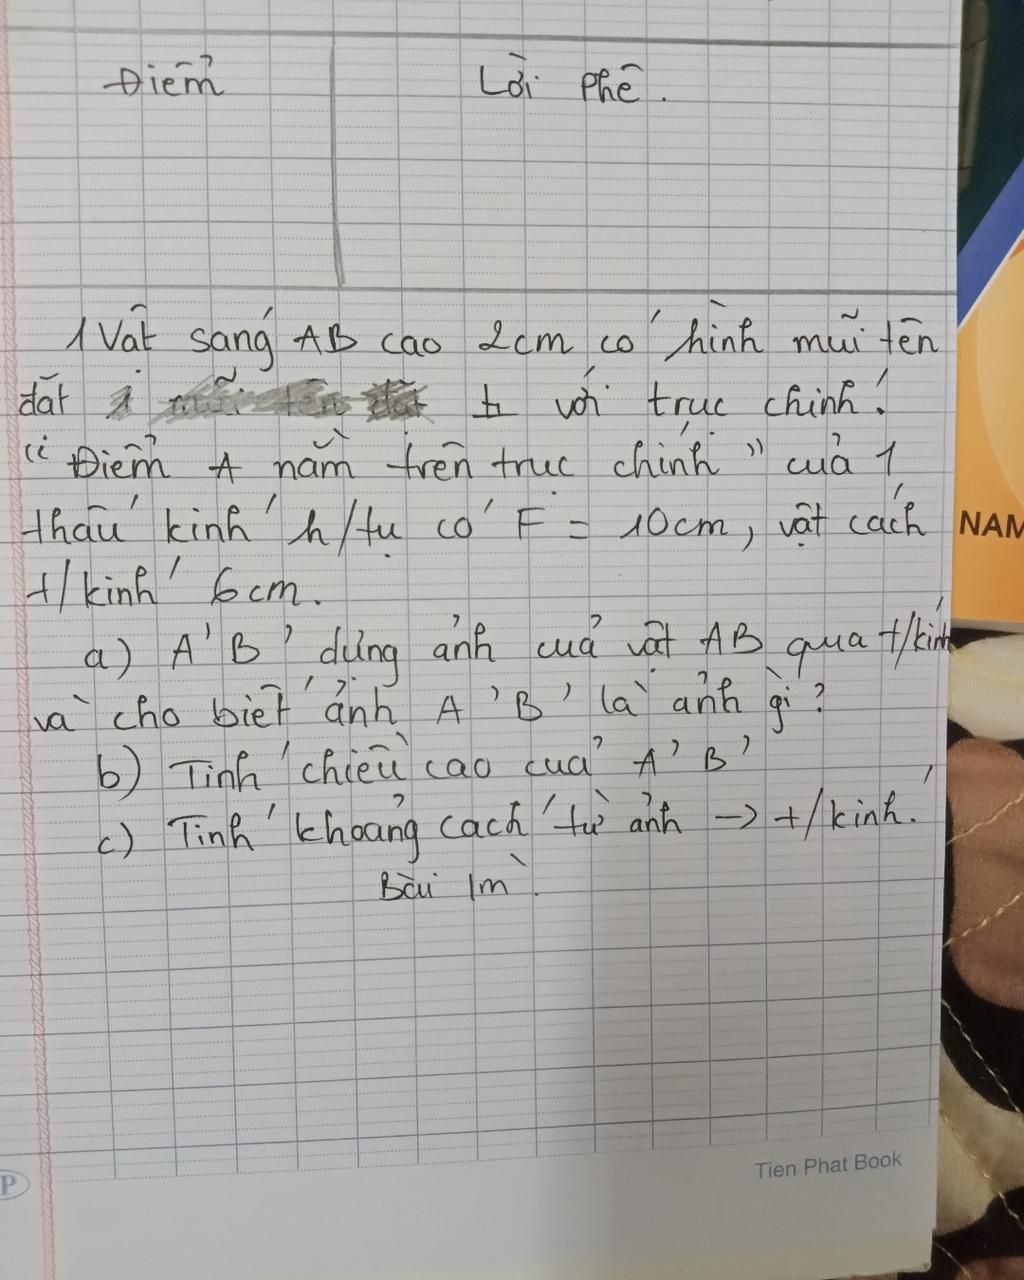 Điểm Lời Phê.
1 Vật sáng AB cao 2cm có hình mũi tên
đặt ⊥ với trục chính.
"Điểm A nằm trên trục chính" của 1
thấu kính h/tụ có F = 10cm, vật cách
t/kính 6cm.
NAM
a) A'B' dựng ảnh của vật AB qua t/kính
và cho biết ảnh A'B' là ảnh gì?
b) Tính chiều cao của A'B'
c) Tính khoảng cách từ ảnh -> t/kính.
Bài làm.
Tien Phat Book
P